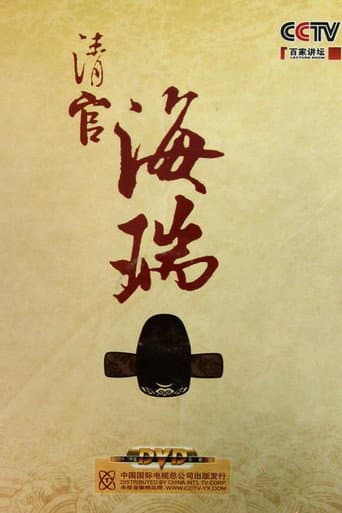 CCTV
百家讲坛
LECTURE ROOM
清官
海瑞
DVD
中国国际电视总公司出版发行
DISTRIBUTED BY CHINA INT'L TV CORP.
WWW.CCTV-YX.COM